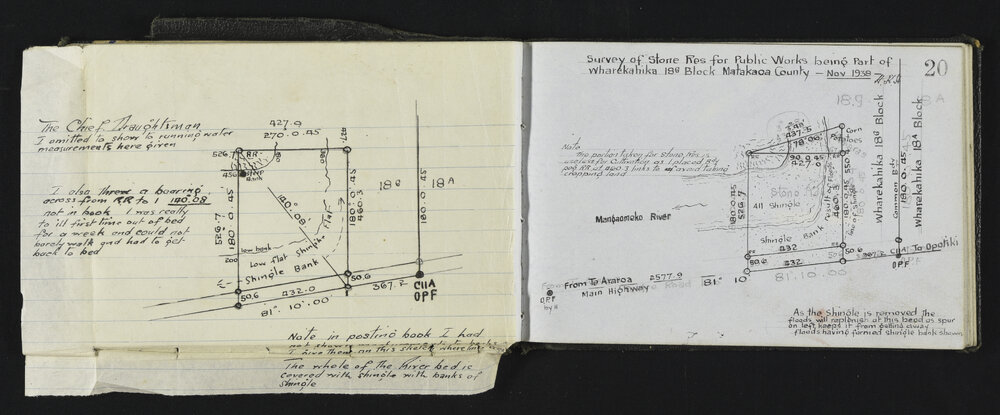 The Chief Draughtsman
I omitted to show to running water
measurements here given
427.0
270.0.45
526.7
RR
456
Bank
18G
18A
I also threw a bearing
across from RR to 1 140.08
not in book I was really
to ill first time out of bed
for a week and could not
barely walk and had to get
back to bed
140.08'
526.7
180.0.45
180.0.45
460.3
180.0.45
low bank
Low flat Shingle Flat
Shingle Bank
50.6
50.6
432.0
367.2
81° 10'.00"
CIIA
OPF
Note in posting book I had
I give them on this sketch
The whole of the River bed is
covered with shingle with banks of
shingle
Survey of Stone Res for Public Works being Part of
Wharekahika 18G Block Matakaoa County - Nov 1938
20
18.G
18A
Note
the portion taken for Stone Res is
useless for Cultivation as I placed
peg RR at 460.3 links to avoid taking
cropping land
437.5
78°00'
90.0.45
427.0
Corn
Potatoes
550.9
180.0.45
526.7
180.0.45
460.3
Stone Res
All Shingle
Shingle Bank
Wharekahika 18G Block
Common Bdy
180.0.45
Wharekahika 18A Block
Mangaomeko River
50.6
50.6
432
432
367.2
CIIA
OPF
To Opotiki
From To Araroa
Main Highway
Road
2577.9
81° 10
81° 10.00
OPF
As the Shingle is removed the
floods will replenish at this bend as spur
on left keeps it from getting away
floods having formed shingle bank shown